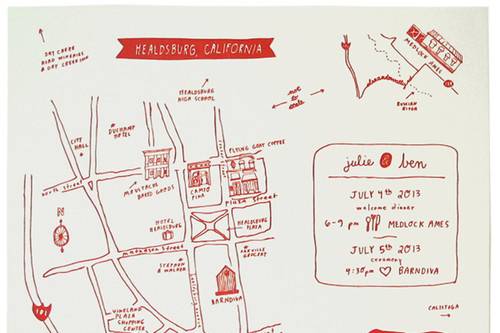 HEALDSBURG, CALIFORNIA
DRY CREEK
ROAD WINERIES
& DRY CREEK INN
HEALDSBURG
HIGH SCHOOL
not
to
scale
MEDLOCK AMES
RUSSIAN
RIVER
CITY
HALL
DUCHAMP
HOTEL
FLYING GOAT COFFEE
North Street
MOUSTACHE
BAKED GOODS
CAMPO
FINA
Plaza Street
N
HOTEL
HEALDSBURG
HEALDSBURG
PLAZA
Matheson Street
STEPHEN
& WALKER
OAKVILLE
GROCERY
BARNDIVA
VINEYARD
PLAZA
SHOPPING
CENTER
101
julie & ben
JULY 4th 2013
welcome dinner
6-9 pm MEDLOCK AMES
JULY 5th 2013
ceremony
4:30pm BARNDIVA
CALISTOGA